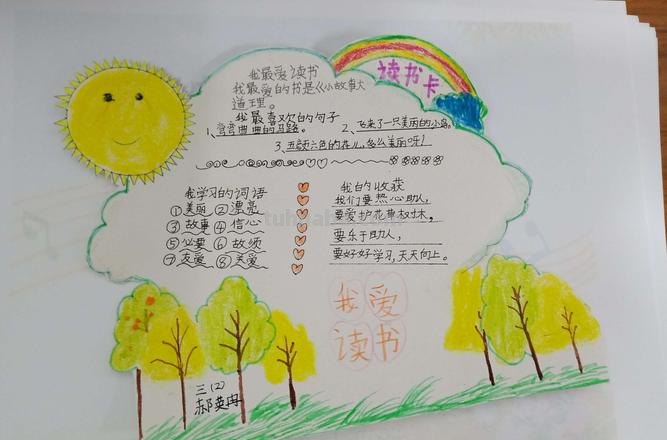 读书卡
我最爱读书
我最爱的书是《小故事大
道理。
我最喜欢的句子
1、弯弯曲曲的马路。 2、飞来了一只美丽的小鸟。
3、五颜六色的花儿,多么美丽呀!
我学习的词语
①美丽 ②漂亮
③故事 ④信心
⑤必要 ⑥故须
⑦友爱 ⑧关爱
我的收获
我们要热心助人,
要爱护花草树木,
要乐于助人,
要好好学习,天天向上。
我爱
读书
三(2)
郝英冉